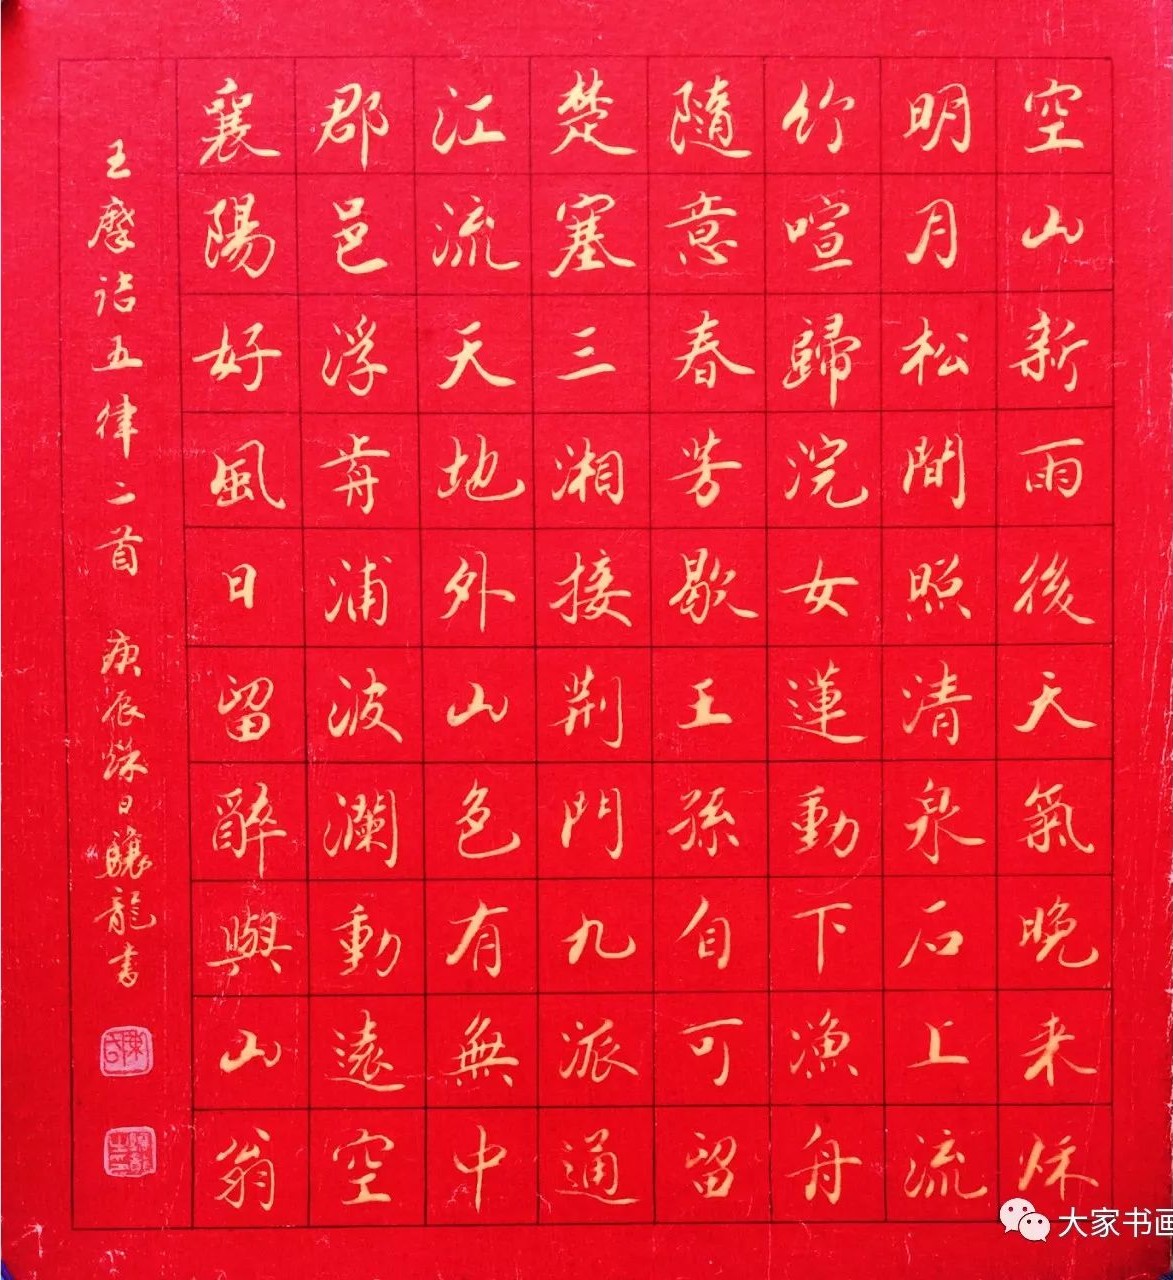 空山新雨後天氣晚来秌
明月松間照清泉石上流
竹喧歸浣女蓮動下漁舟
隨意春芳歇王孫自可留
楚塞三湘接荆門九派通
江流天地外山色有無中
郡邑浮歬浦波瀾動遠空
襄陽好風日留醉與山翁
王摩詰五律二首 庚辰秌日驤龍書
大家书画